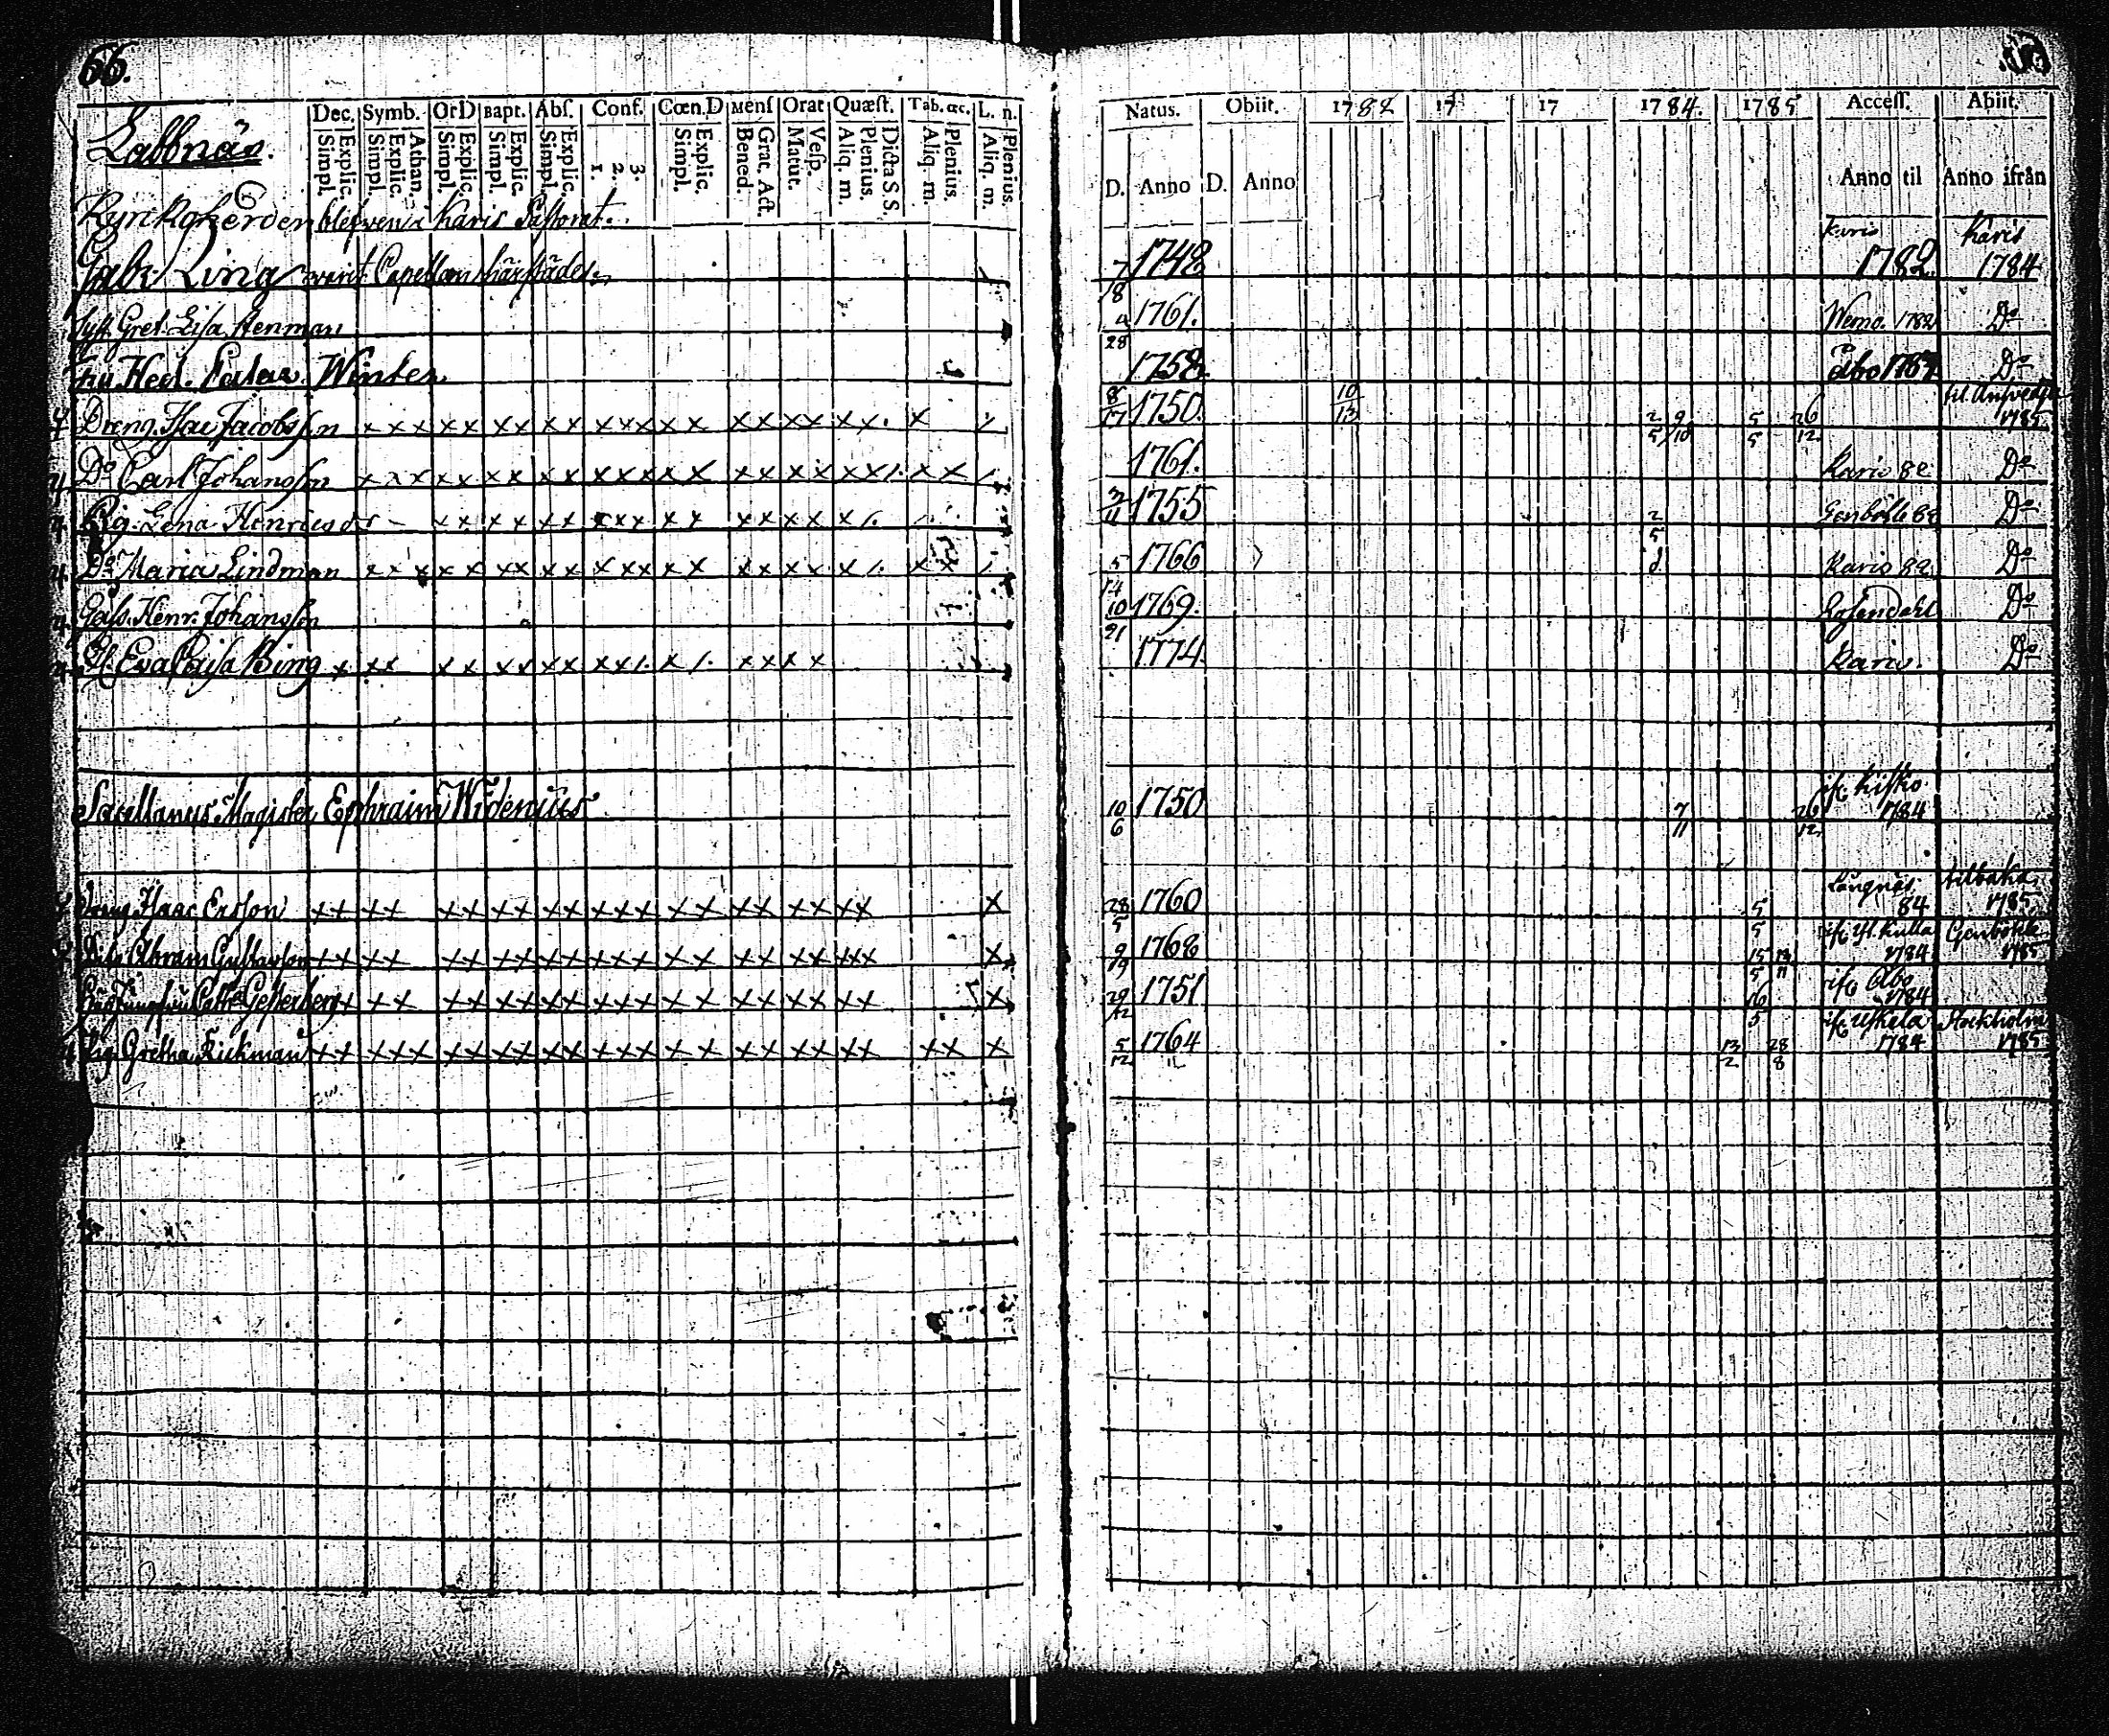 66.
Dec. Symb. Or D Bapt. Abſ. Conf. Cœn.D Menſ Orat Quæſt. Tab. œc. L. n.
Labbnäs.
Simpl. Explic. Simpl. Explic. Athan. Simpl. Explic. Simpl. Explic. Simpl. Explic. 1. 2. 3. Simpl. Explic. Bened. Grat. Act. Matut. Veſp. Aliq. m. Plenius. Dicta S S. Aliq. m. Plenius. Aliq. m. Plenius.
Kyrckoherden blefven i Karis Pastorat.
Gabr Ling varit Capellan härstädes
Syst. Gret. Lisa Stenman
Fru Hed. Catar. Winter
Dreng. Isac Jacobsson x x x x x x x x x x x x x x x x x x x x x
Do Carl Johansson x x x x x x x x x x x x x x x x x x x x x x
Pig. Lena Henricsdr
Do Maria Lindman x x x x x x x x x x x x x x x x x x x x
Goss. Henr. Johansson
Fl. Eva Caisa Bing x x x x x x x x x x x x x x x x
Sacellanus Magister Ephraim Widenius
Dreng Isaac Ersson x x x x x x x x x x x x x x x x x x x x x
Dito Abram Gustavsson x x x x x x x x x x x x x x x x x x x x x x
Jungfru Cath. Gesterberg
Pig. Gretha Rickman x x x x x x x x x x x x x x x x x x x x x x x x
Natus. Obiit. 1782 17 17 1784. 1785 Acceſſ. Abiit.
D. Anno D. Anno Anno til Anno ifrån
7/8 1748 Karis 1782 Karis 1784
4/28 1761. Wemo. 1782 Do
1758. Åbo Do
8/17 1750. 10/13 2/5 9/10 5/5 26/12 1785
1761. Karis 82 Do
2/11 1755 2/5 Genböhle 82 Do
5/14 1766 Karis 82 Do
10/21 1769. Rosendahl Do
1774. Karis. Do
10/6 1750 7/11 26/12 ifr. Kisko 1784
28/5 1760 5/5 Långnäs 84 tilbaka 1785
9/9 1768 15/5 13/11 ifr. Yl. Kulla 1784 Genböhle 1785
29/12 1751 16/5 ifr. Åbo 1784
5/12 1764 13/2 28/8 ifr. Uskela 1784 Stockholm 1785